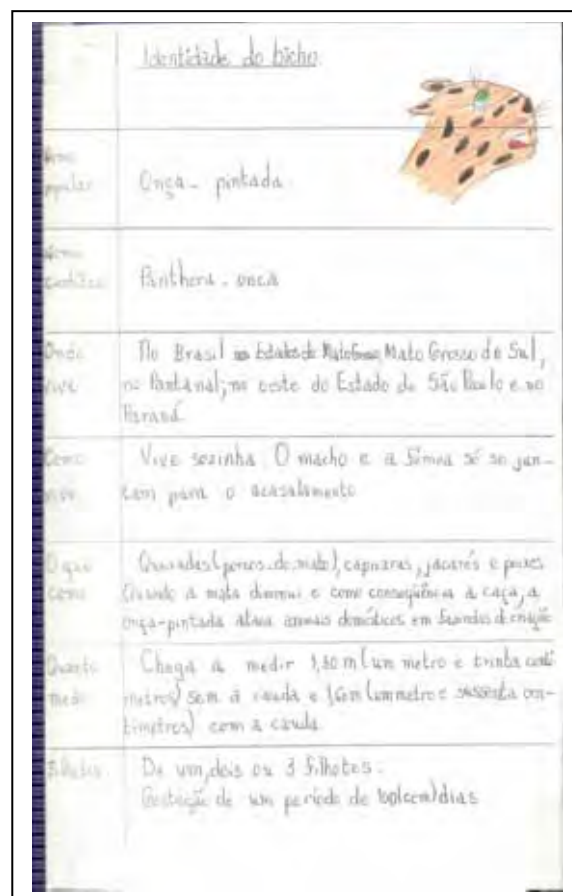 Identidade do bicho
Nome popular
Onça - pintada
Nome científico
Panthera - onca
Onde vive
No Brasil nos Estados de Mato Grosso, Mato Grosso do Sul,
no Pantanal; no oeste do Estado de São Paulo e no
Paraná.
Como vive
Vive sozinha. O macho e a fêmea só se jun-
tam para o acasalamento
O que come
Queixadas (porcos-do-mato), capivaras, jacarés e peixes
Quando a mata diminui e como conseqüência a caça, a
onça-pintada ataca animais domésticos em fazendas de criação
Quanto mede
Chega a medir 1,30 m (um metro e trinta centí
metros) sem a cauda e 1,60m (um metro e sessenta cen-
tímetros) com a cauda.
Filhotes
De um, dois ou 3 filhotes.
Gestação de um período de 100 (cem) dias